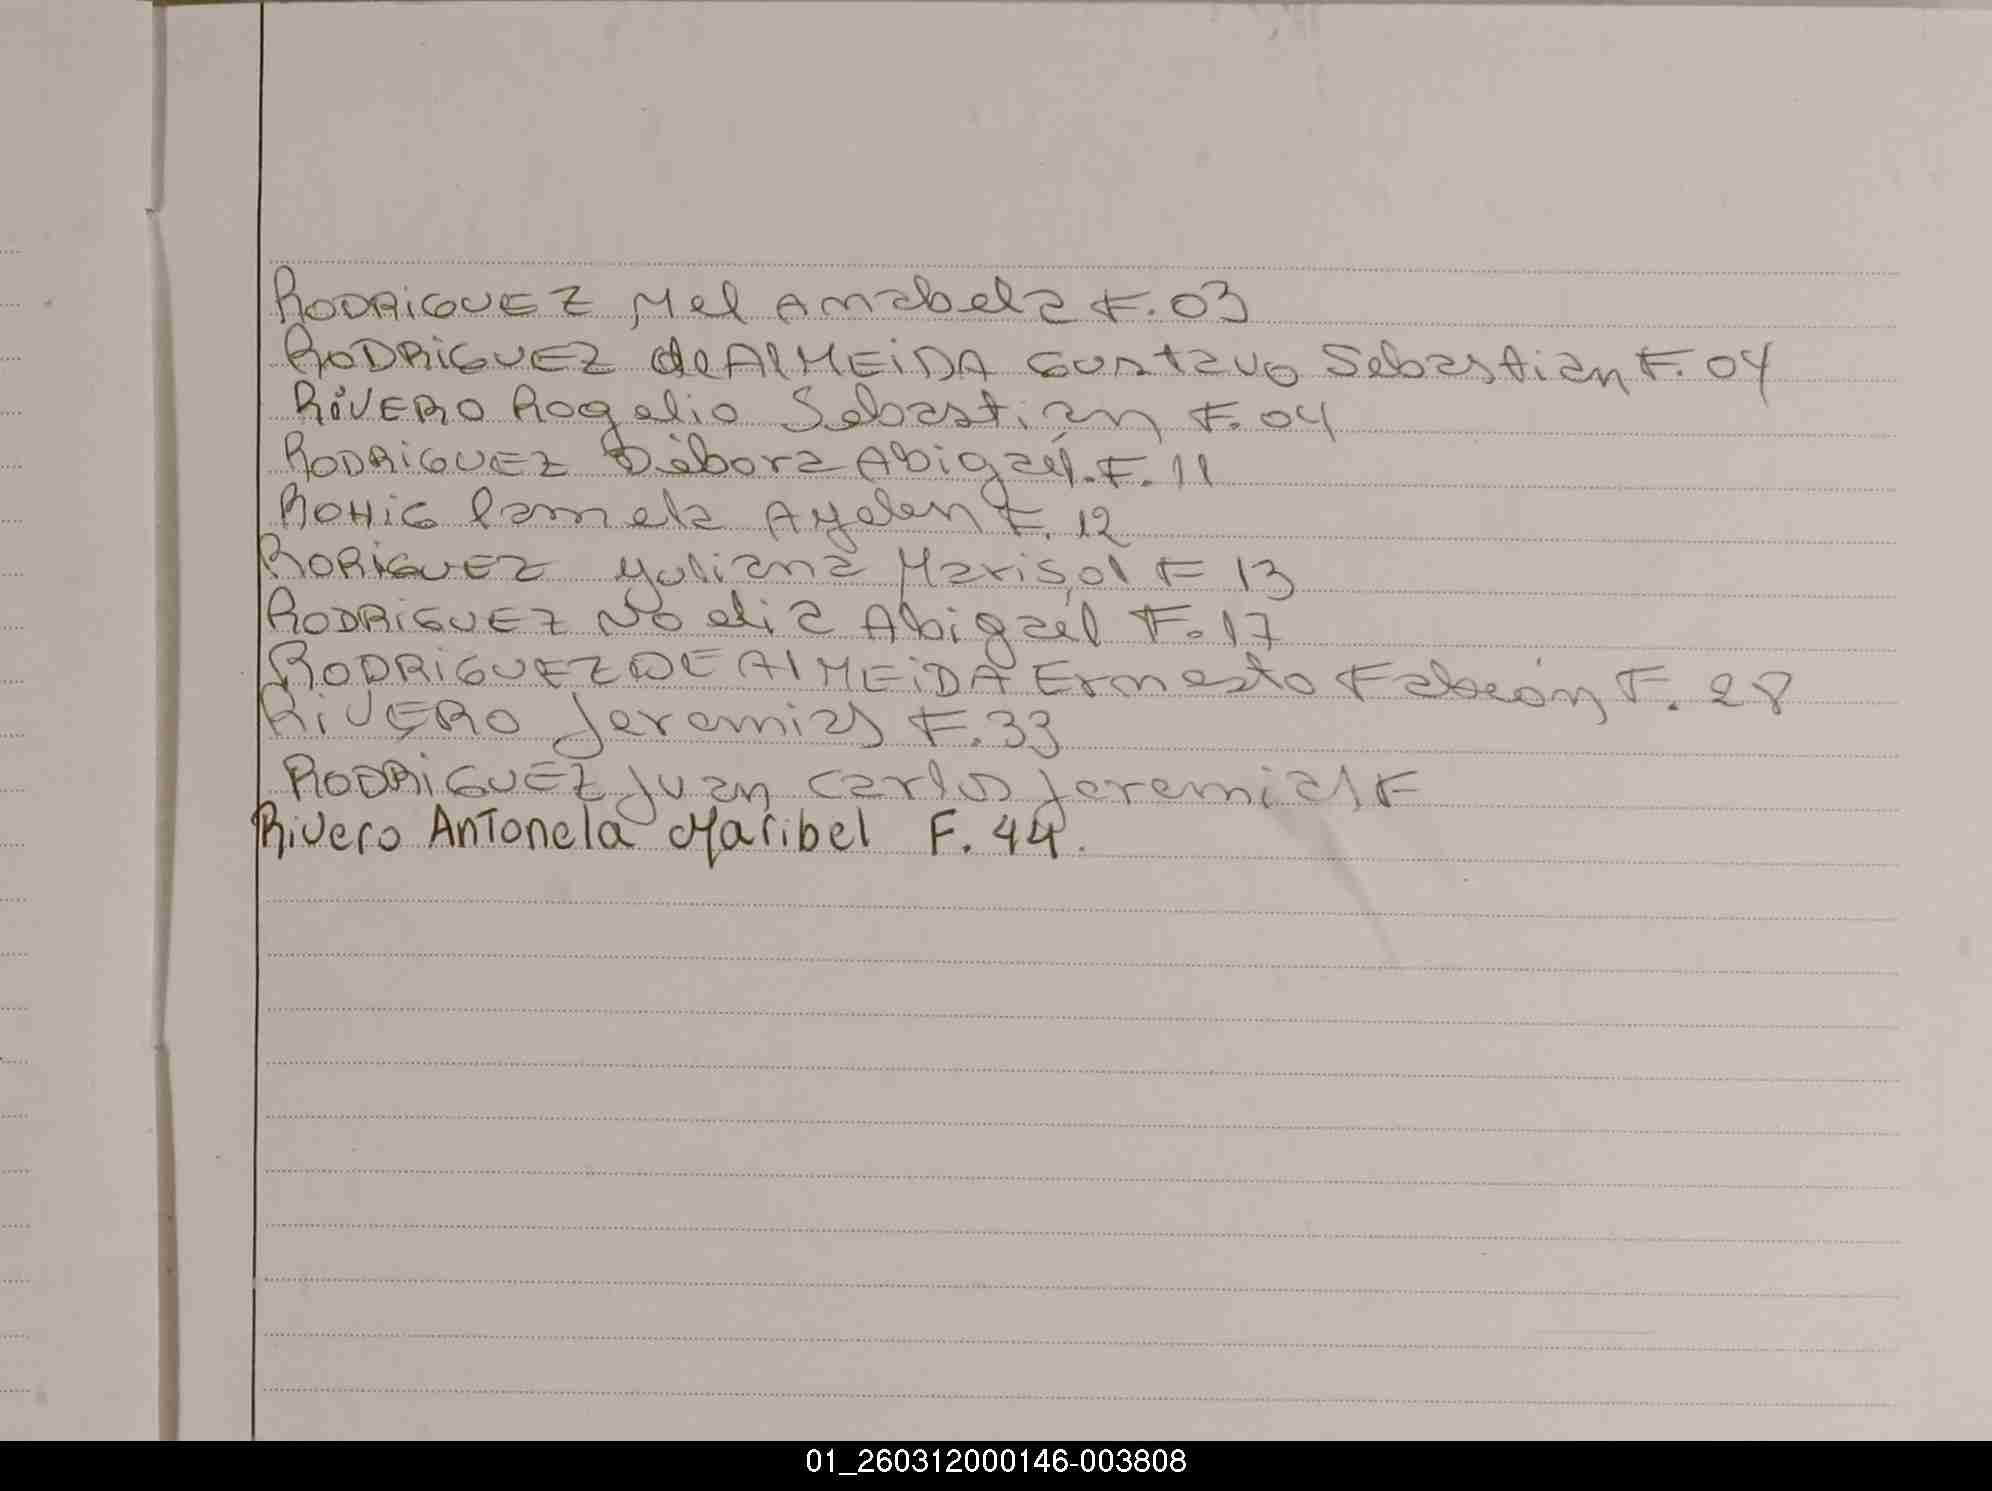 RODRIGUEZ Mel Anabela F. 03
RODRIGUEZ de ALMEIDA Gustavo Sebastian F. 04
RIVERO Rogelio Sebastián F. 04
RODRIGUEZ Débora Abigaíl. F. 11
ROHIG Pamela Ayelen F. 12
RORIGUEZ Yuliana Marisol F 13
RODRIGUEZ Noelia Abigaíl F. 17
RODRIGUEZ DE ALMEIDA Ernesto Fabián F. 28
RIVERO Jeremias F. 33
RODRIGUEZ Juan Carlos Jeremias F
Rivero Antonela Maribel F. 44.
01_260312000146-003808